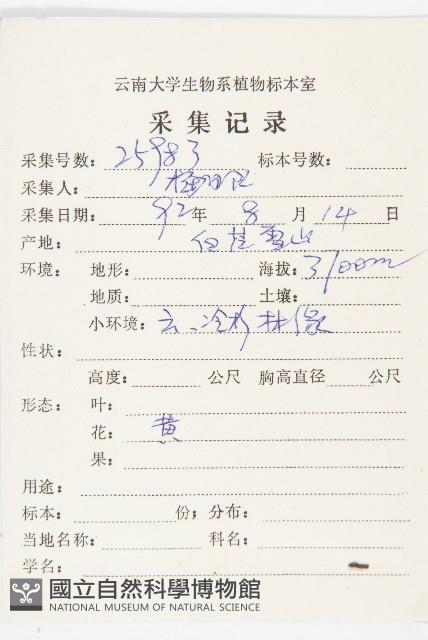 云南大学生物系植物标本室
采集记录
采集号数: 25983 标本号数:
采集人:
采集日期: 92年 8月 14日
产地: 白茫雪山
环境: 地形: 海拔: 3700m
地质: 土壤:
小环境: 云、冷杉林缘
性状:
高度: 公尺 胸高直径 公尺
形态: 叶:
花: 黄
果:
用途:
标本: 份; 分布:
当地名称: 科名:
学名:
國立自然科學博物館
NATIONAL MUSEUM OF NATURAL SCIENCE